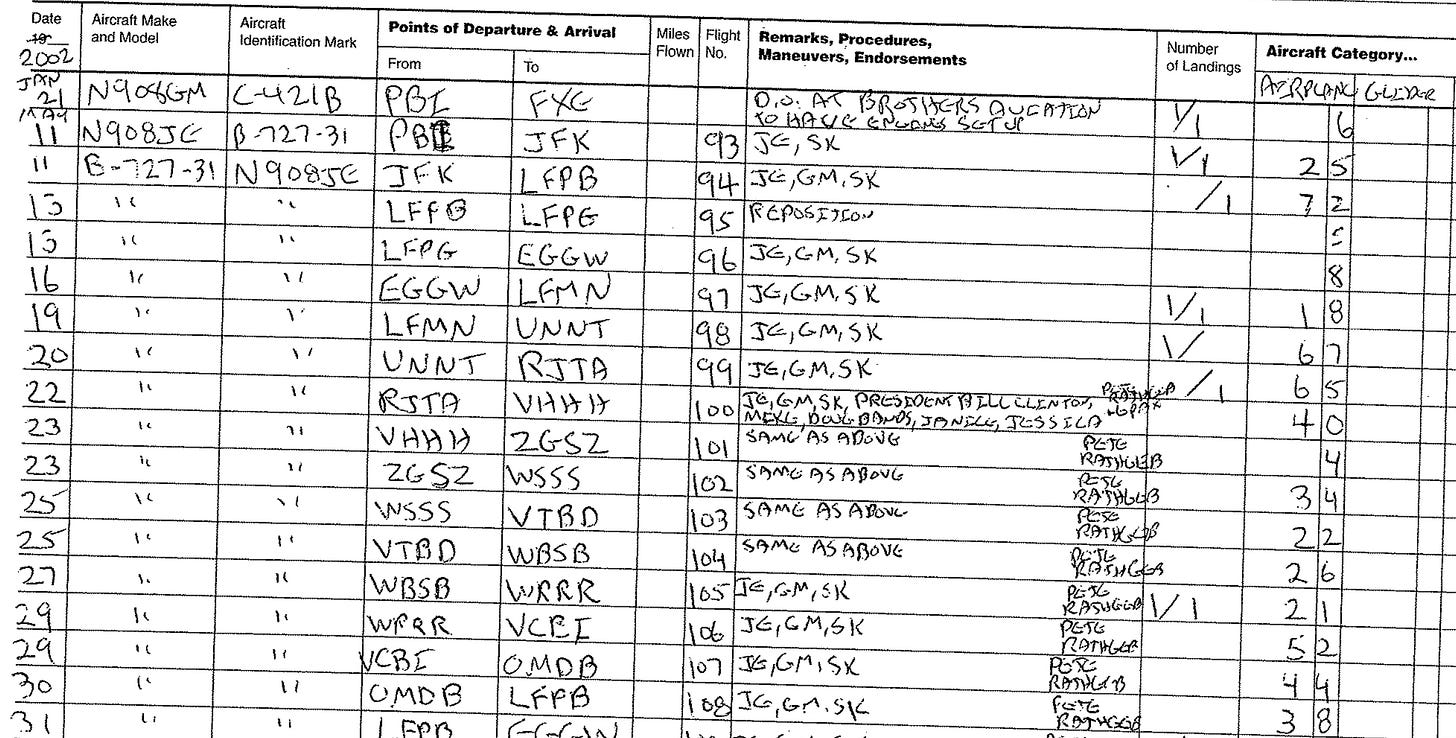 Date Aircraft Make and Model Aircraft Identification Mark Points of Departure & Arrival From To Miles Flown Flight No. Remarks, Procedures, Maneuvers, Endorsements Number of Landings Aircraft Category...
2002 AIRPLANE GLIDER
JAN 21 N908GM C-421B PBI FXE 1/1 6
MAY 11 N908JE B-727-31 PBI JFK 93 JE, SK 1/1 2 5
11 B-727-31 N908JE JFK LFPB 94 JE, GM, SK /1 7 2
13 " " LFPB LFPG 95 REPOSITION
15 " " LFPG EGGW 96 JE, GM, SK 8
16 " " EGGW LFMN 97 JE, GM, SK 1/1 1 8
19 " " LFMN UNNT 98 JE, GM, SK 1/ 6 7
20 " " UNNT RJTA 99 JE, GM, SK /1 6 5
22 " " RJTA VHHH 100 JE, GM, SK, PRESIDENT BILL CLINTON, 4 0
MIKE, DOUG BANDS, JANICE, JESSICA
23 " " VHHH ZGSZ 101 SAME AS ABOVE PETE RATHGEB 4
23 " " ZGSZ WSSS 102 SAME AS ABOVE PETE RATHGEB 3 4
25 " " WSSS VTBD 103 SAME AS ABOVE PETE RATHGEB 2 2
25 " " VTBD WBSB 104 SAME AS ABOVE PETE RATHGEB 2 6
27 " " WBSB WRRR 105 JE, GM, SK PETE RATHGEB 1/1 2 1
29 " " WRRR VCBI 106 JE, GM, SK PETE RATHGEB 5 2
29 " " VCBI OMDB 107 JE, GM, SK PETE RATHGEB 4 4
30 " " OMDB LFPB 108 JE, GM, SK PETE RATHGEB 3 8
31 " " LFPB EGGW